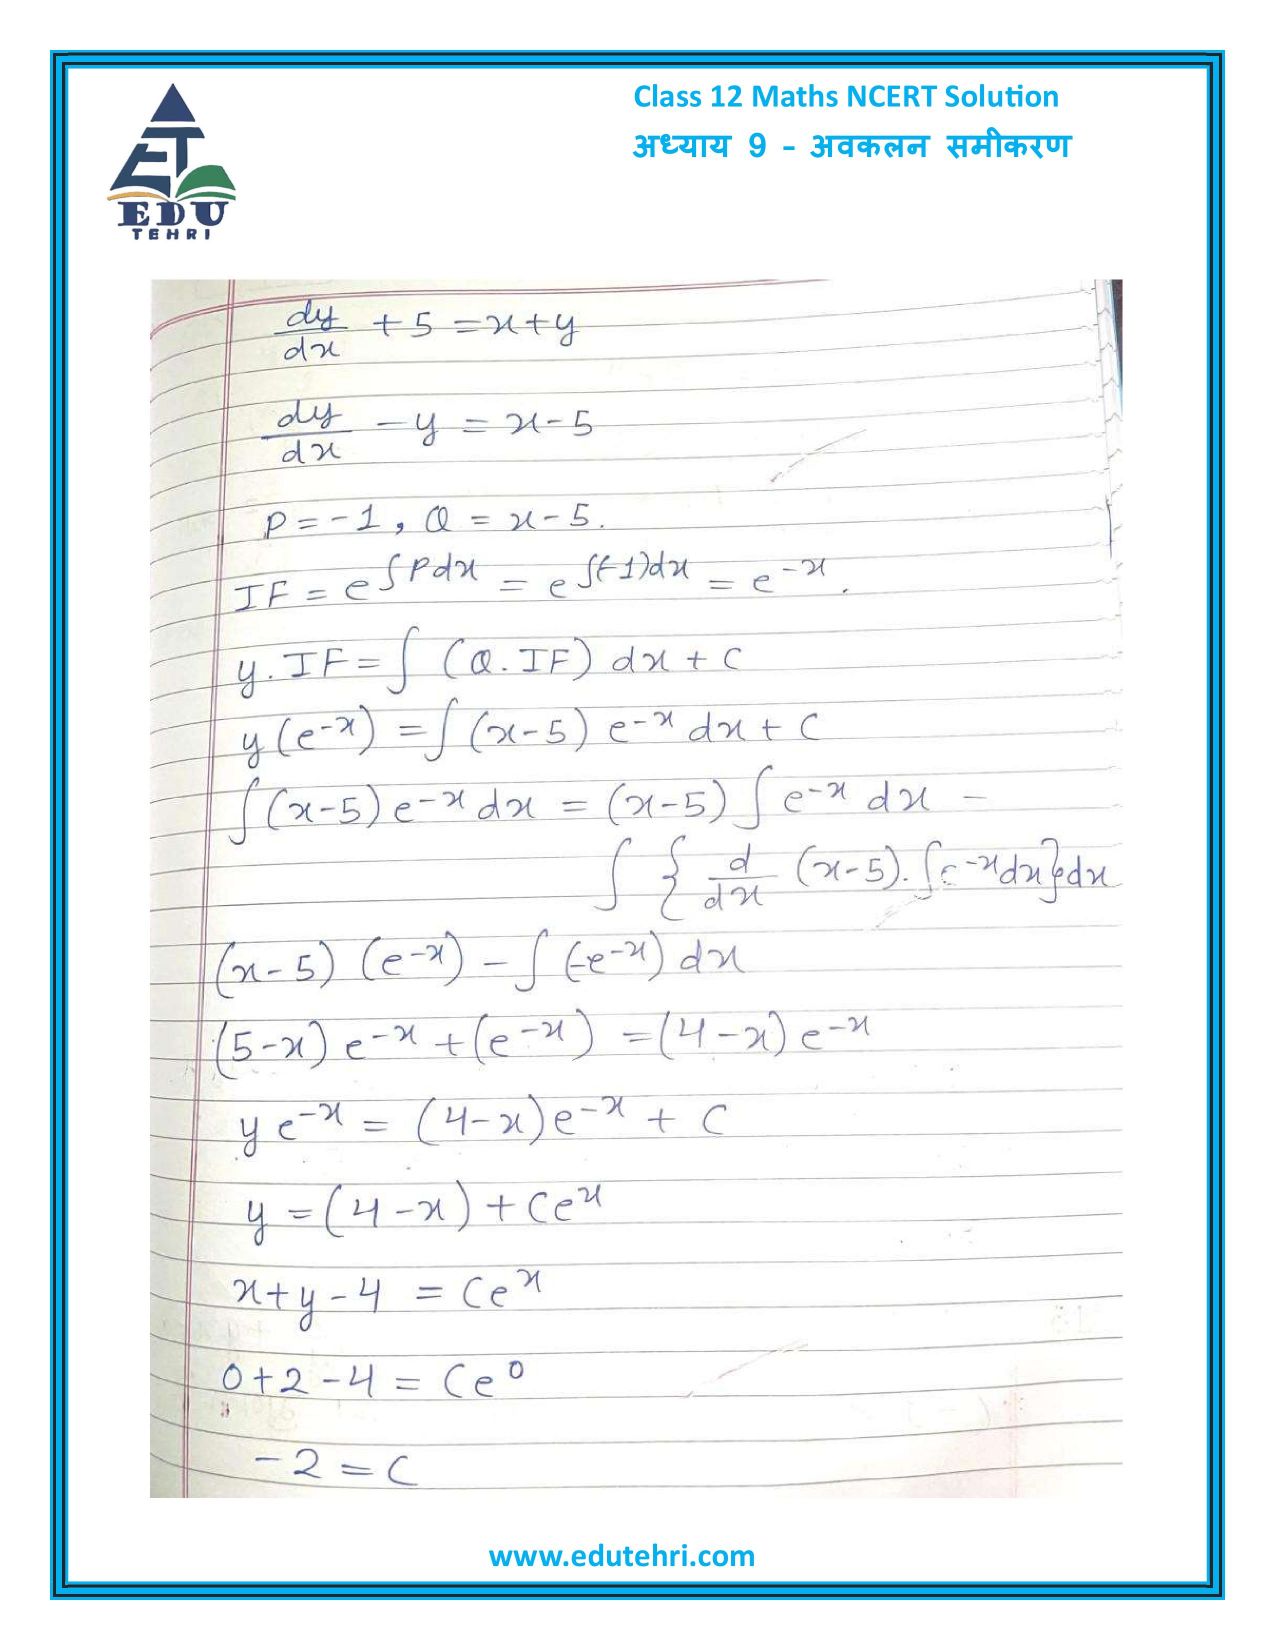 Class 12 Maths NCERT Solution
अध्याय 9 - अवकलन समीकरण
EDU
TEHRI
dy/dx + 5 = x + y
dy/dx - y = x - 5
P = -1, Q = x - 5.
IF = e^∫Pdx = e^∫(-1)dx = e^-x.
y. IF = ∫ (Q. IF) dx + C
y (e^-x) = ∫ (x-5) e^-x dx + C
∫ (x-5) e^-x dx = (x-5) ∫ e^-x dx -
∫ { d/dx (x-5). ∫e^-x dx} dx
(x-5) (e^-x) - ∫ (-e^-x) dx
(5-x) e^-x + (e^-x) = (4-x) e^-x
y e^-x = (4-x) e^-x + C
y = (4-x) + Ce^x
x+y-4 = Ce^x
0+2-4 = Ce^0
-2 = C
www.edutehri.com